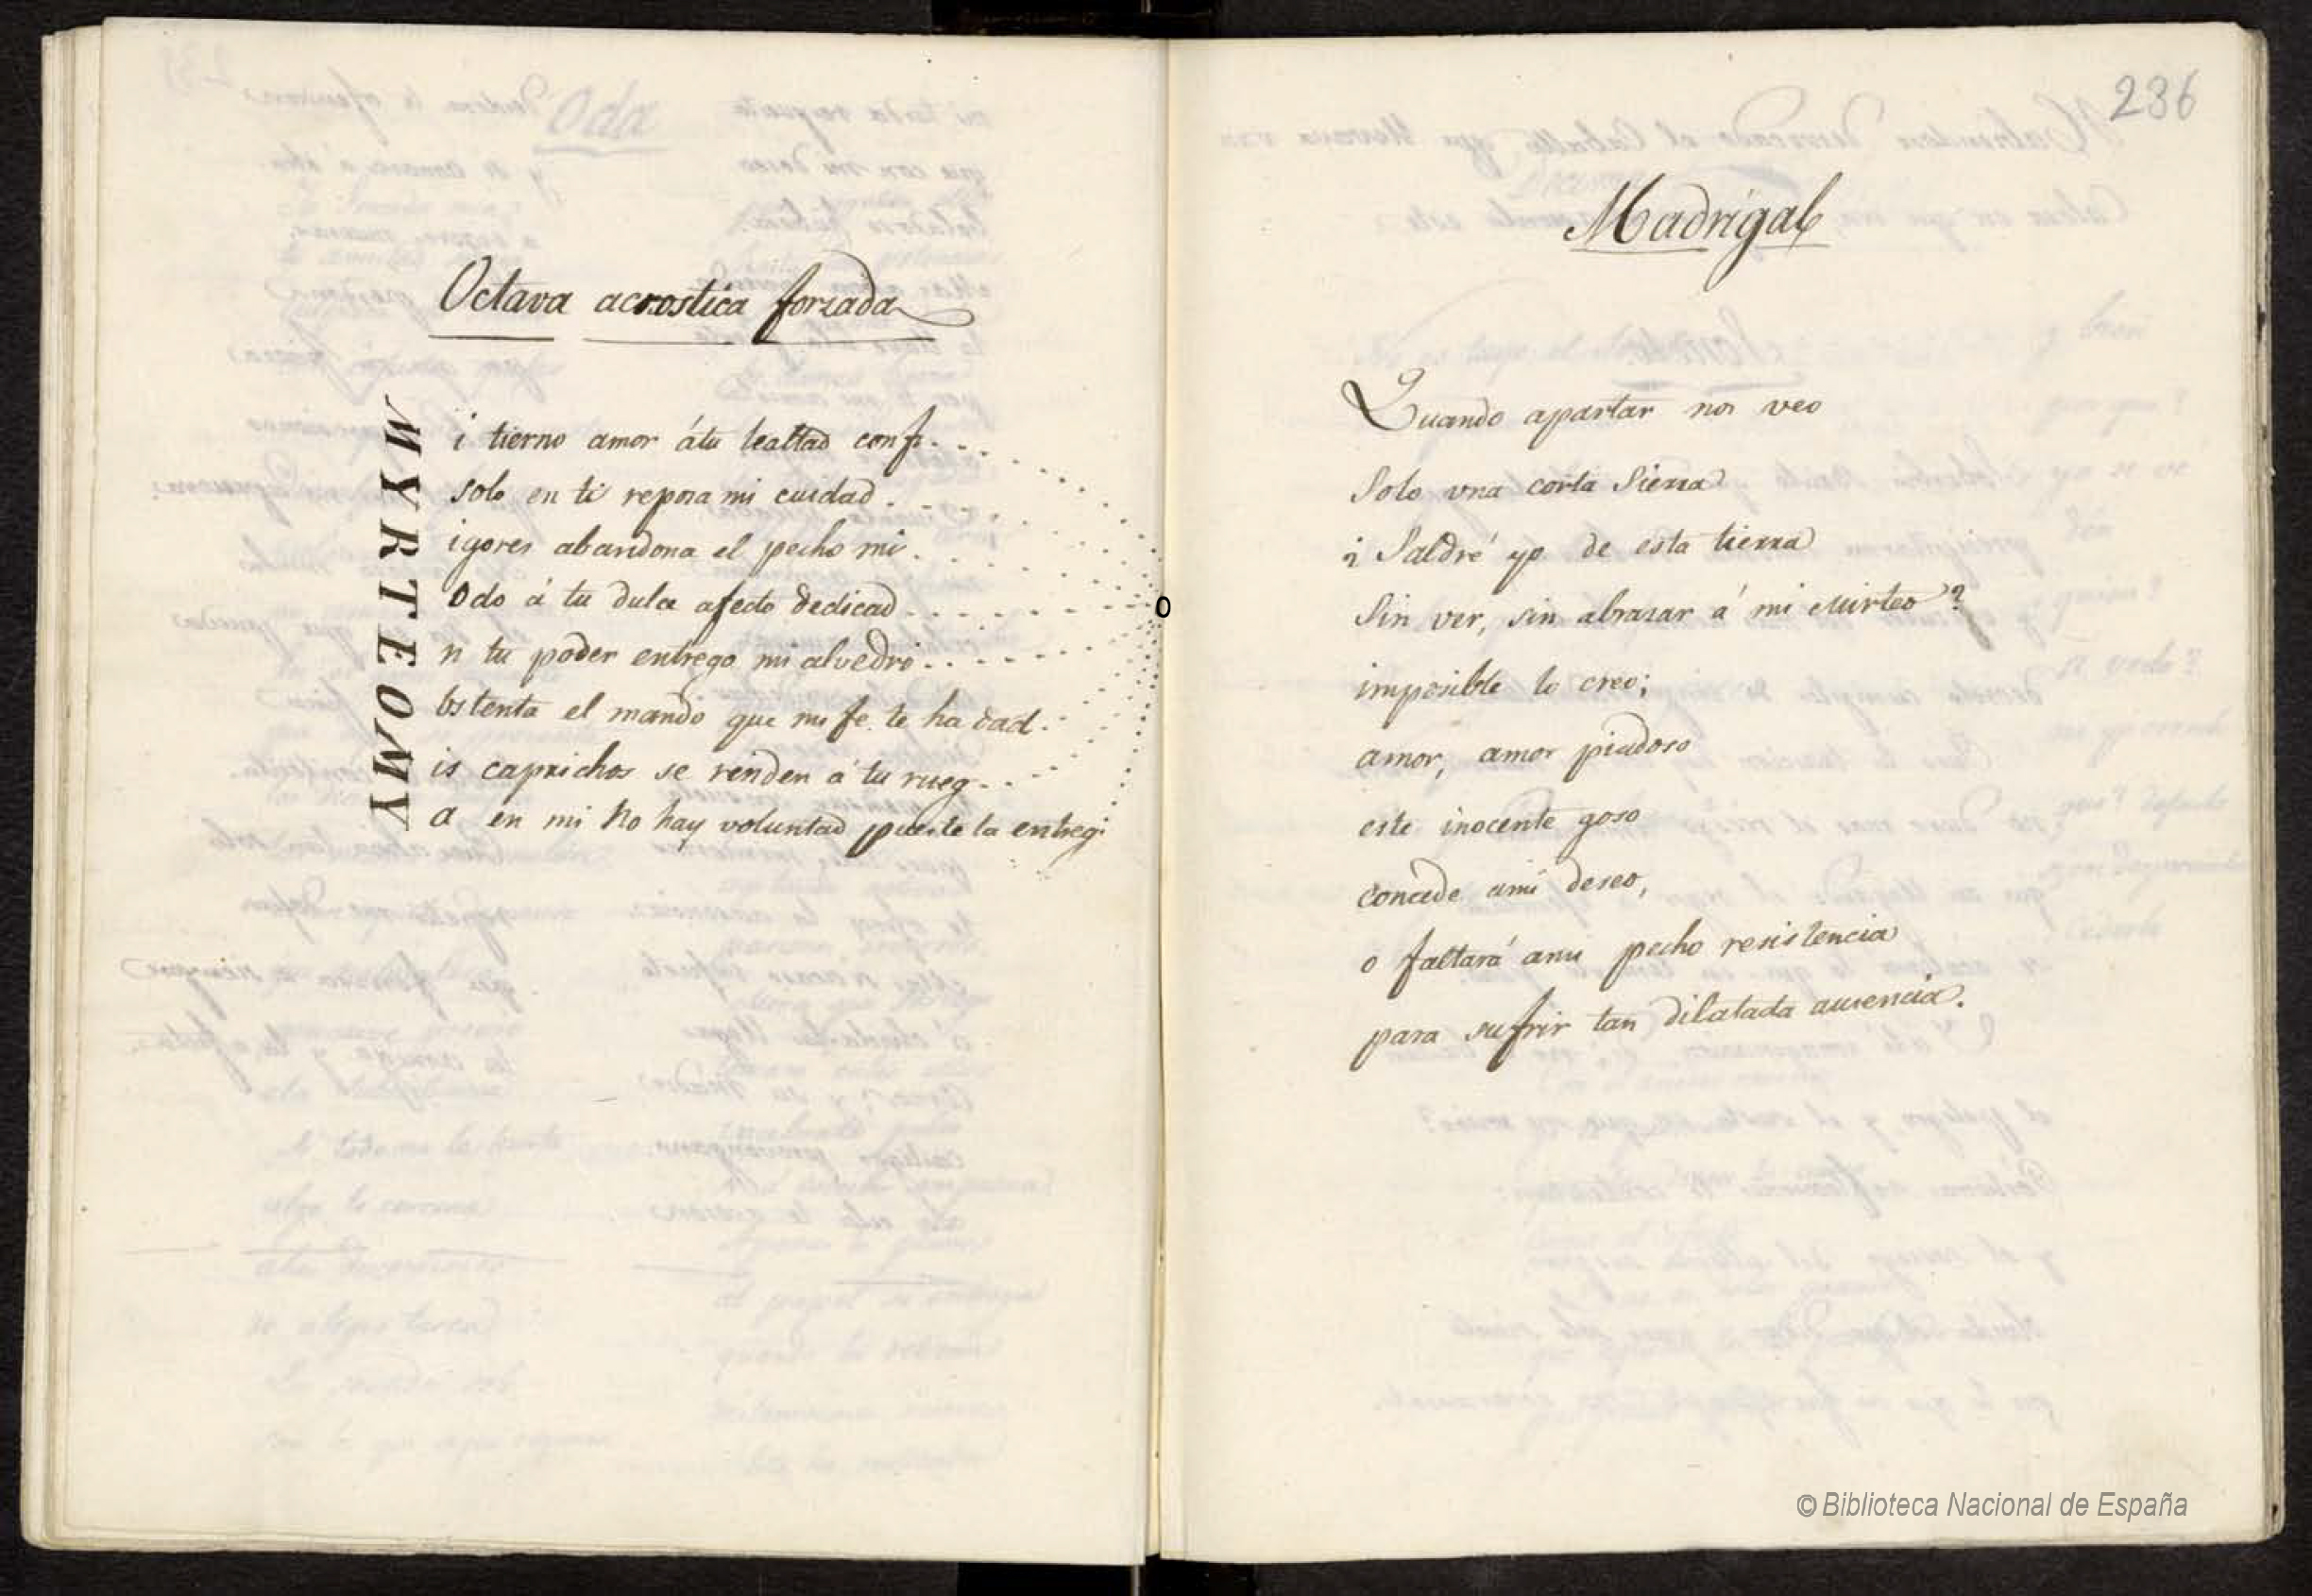 Octava acrostica forzada
MYRTEOMY
i tierno amor átu lealtad confi
solo en ti reposa mi cuidad
igores abandona el pecho mi
odo á tu dulce afecto dedicad
n tu poder entrego mi alvedri
bstenta el mando que mi fe te ha dad
is caprichos se rinden á tu rueg
a en mi no hay voluntad pues te la entreg
O
236
Madrigal
Quando apartar nos veo
Solo vna corta Sierra
¿ Saldré yo de esta tierra
Sin ver, sin abrazar á mi Mirteo?
imposible lo creo;
amor, amor piadoso
este inocente goso
concede ami deseo,
o faltará ami pecho resistencia
para sufrir tan dilatada ausencia.
© Biblioteca Nacional de España